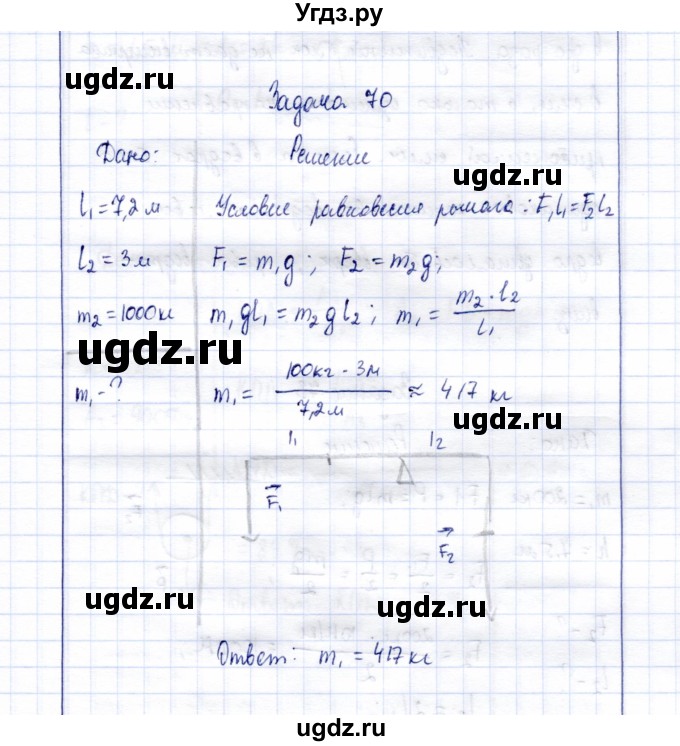 Угдз.ру
ugdz.ru
Задача 70
Дано: Решение
ugdz.ru
l₁ = 7,2 м Условие равновесия рычага: F₁l₁ = F₂l₂
l₂ = 3 м F₁ = m₁g; F₂ = m₂g;
m₂ = 1000 кг m₁gl₁ = m₂gl₂; m₁ = m₂·l₂ / l₁
ugdz.ru
m₁ - ? m₁ = 100кг · 3м / 7,2м ≈ 417 кг
ugdz.ru
l₁ l₂
F₁
F₂
ugdz.ru
ugdz.ru
Ответ: m₁ = 417 кг
ugdz.ru